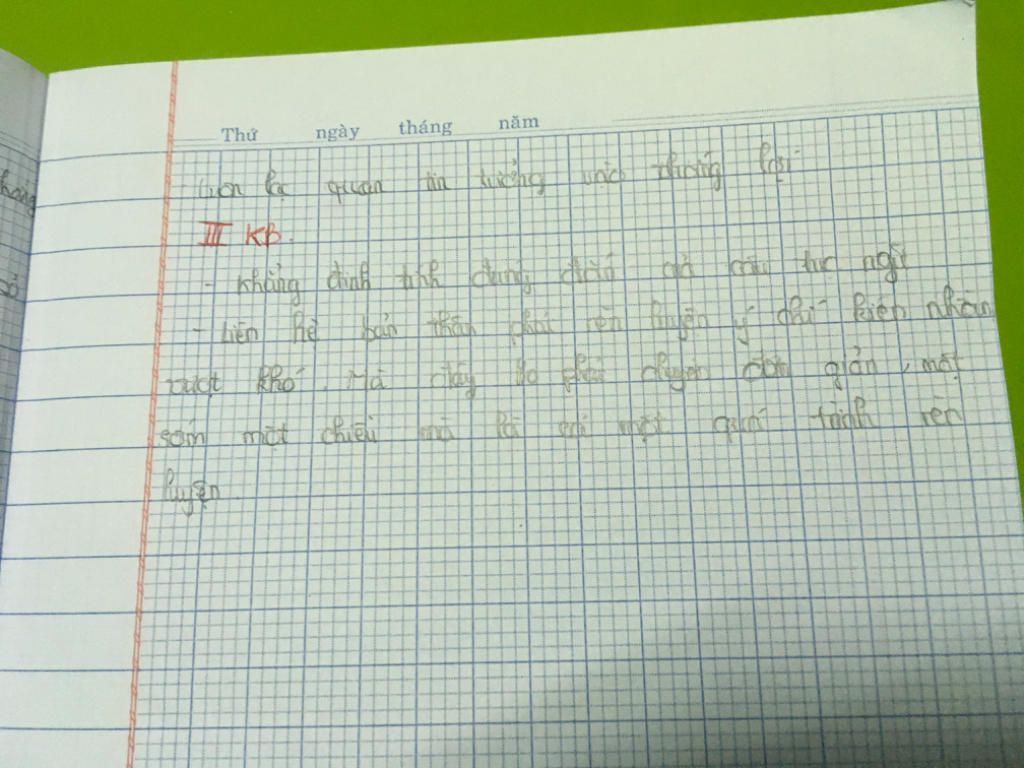 Thứ ngày tháng năm
luôn lạc quan tin tưởng vào thắng lợi
III KB.
- Khẳng định tính đúng đắn của câu tục ngữ
- Liên hệ bản thân phải rèn luyện ý chí kiên nhẫn
vượt khó. Mà đây ko phải chuyện đơn giản, một
sớm một chiều mà là cả một quá trình rèn
luyện.